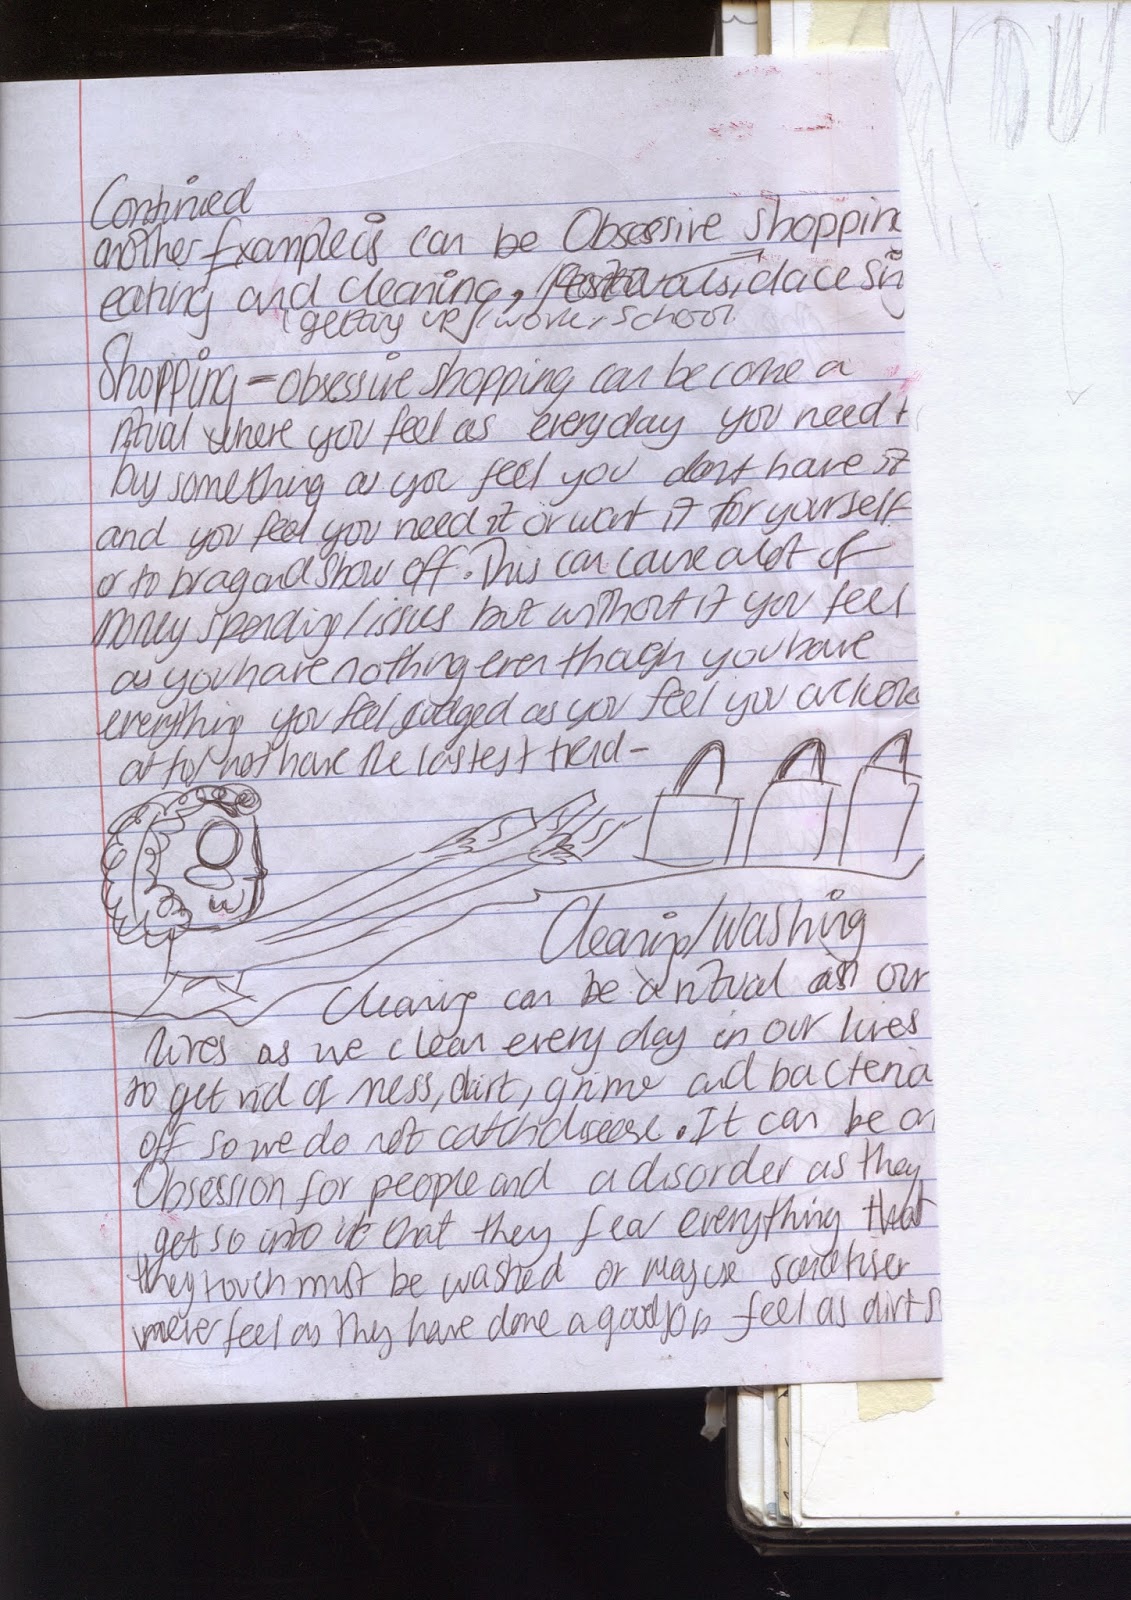 Continied
another Example is can be Obsessive shoppin
eating and cleaning, festivals, dace
(getting up / work, school
Shopping - obsessive shopping can become a
ritual where you feel as everyday you need t
buy something as you feel you dont have it
and you feel you need it or want it for yourself
or to brag and show off. This can cause a lot of
money spending/issues but without it you feel
as you have nothing even though you have
everything you feel judged as you feel you are looke
at for not have the lastest trend -
Cleaning/Washing
Cleaning can be a ritual in our
lives as we clean every day in our lives
to get rid of mess, dirt, grime and bacteria
off so we do not catch disease. It can be an
Obsession for people and a disorder as they
get so into it that they fear everything that
they touch must be washed or may use
never feel as they have done a good job feel as dirt